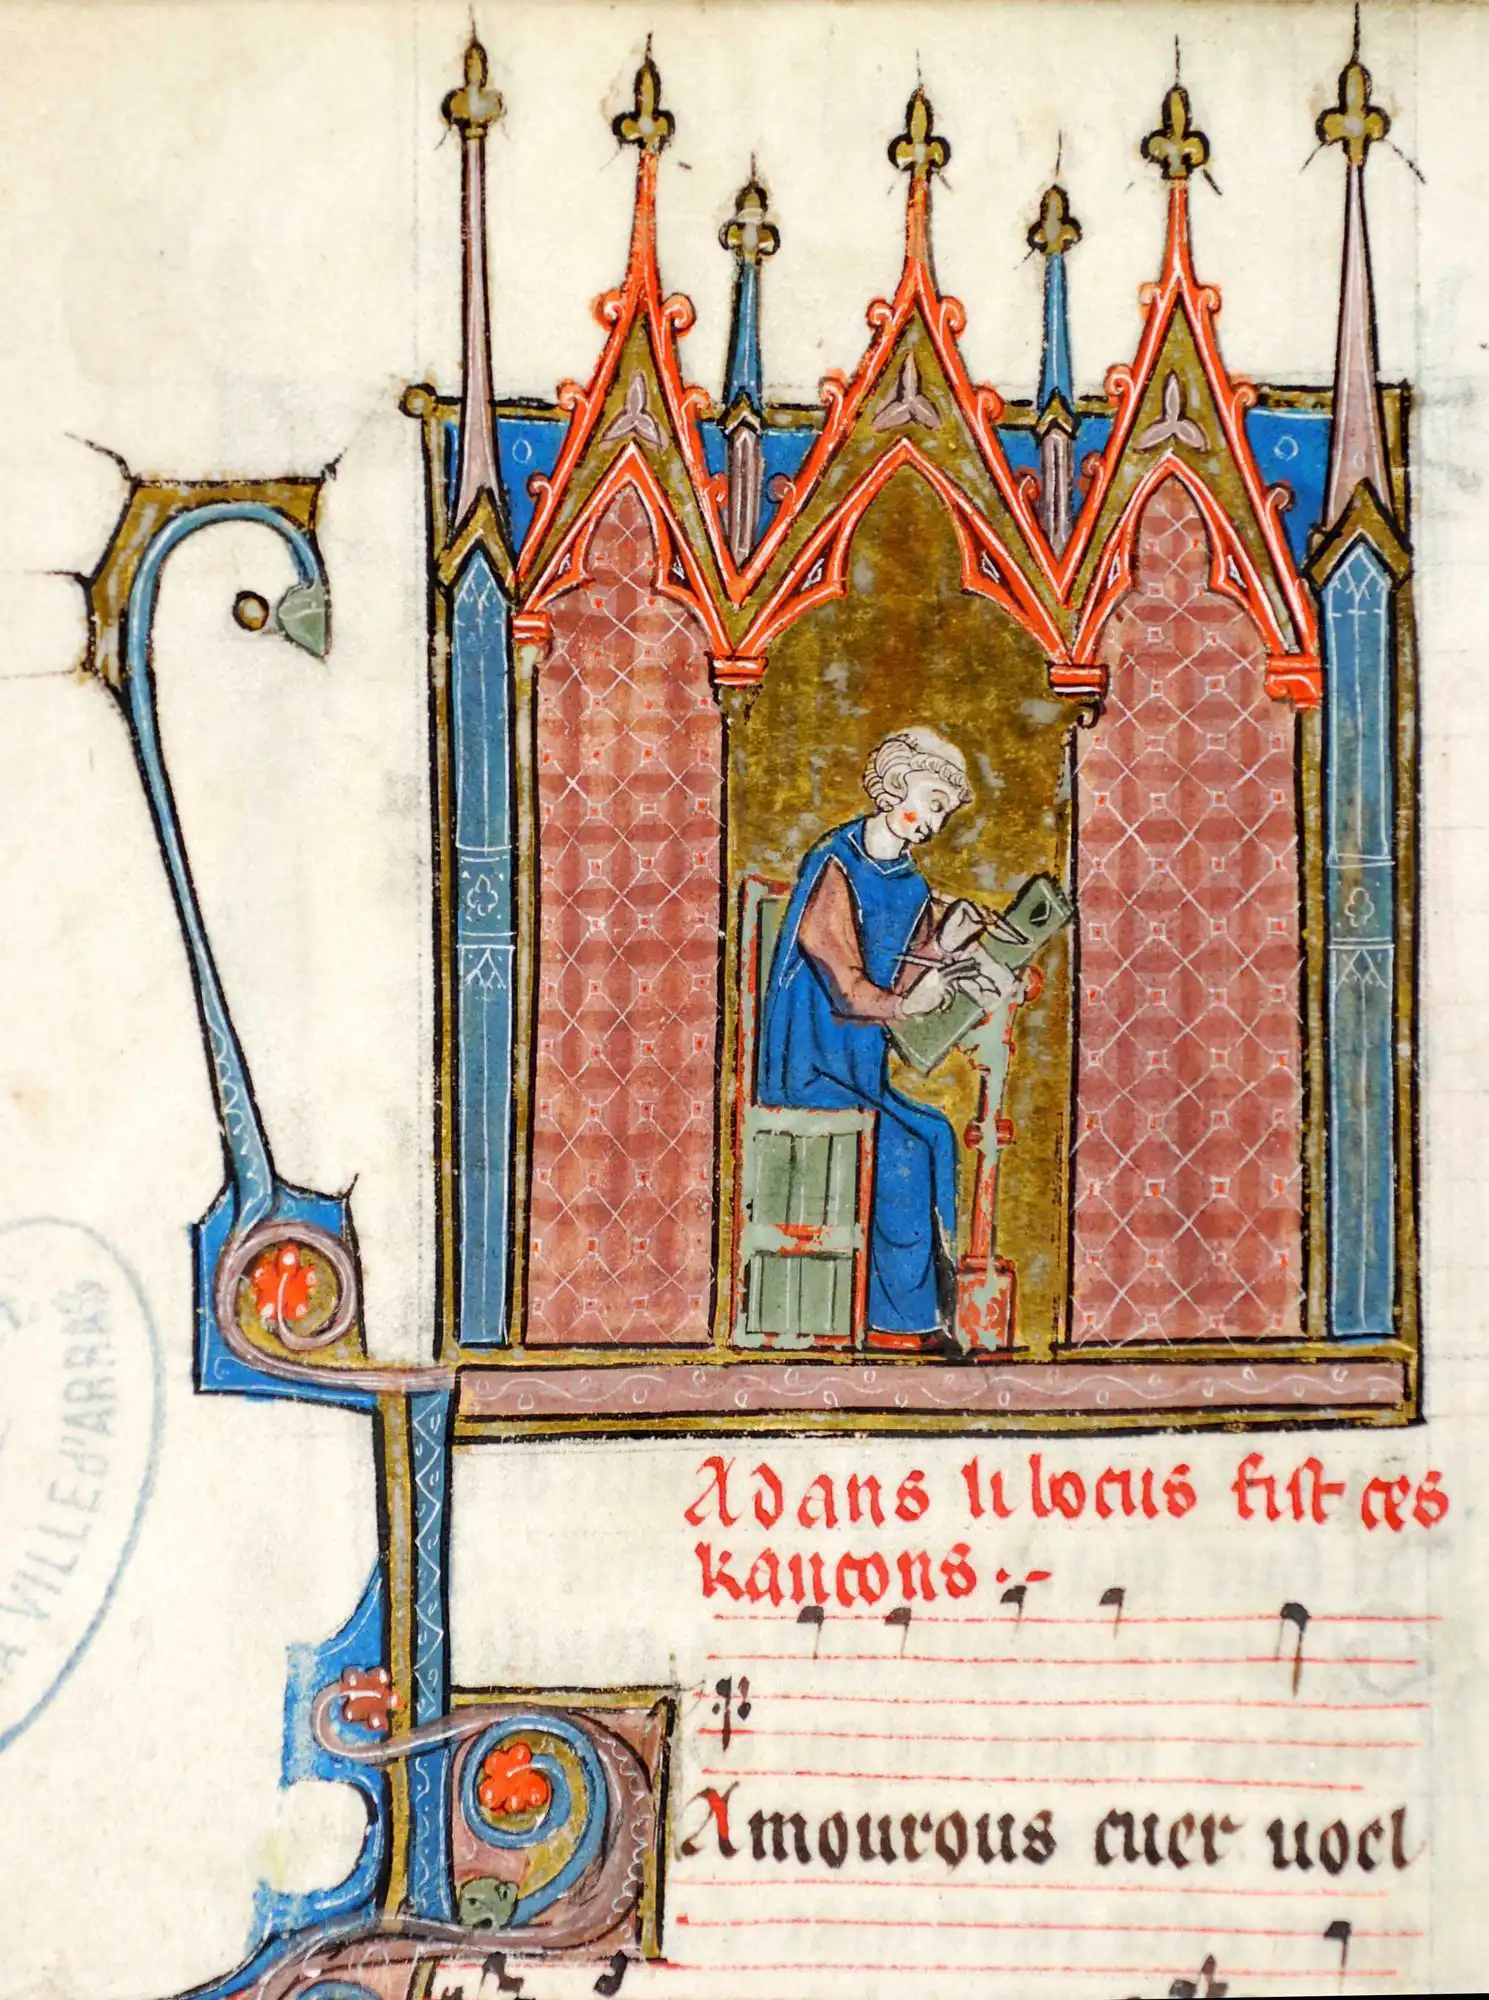 Adans li bocus fist ces
kancons :-
D
Amourous cuer uoel
LA VILLE d'ARRAS